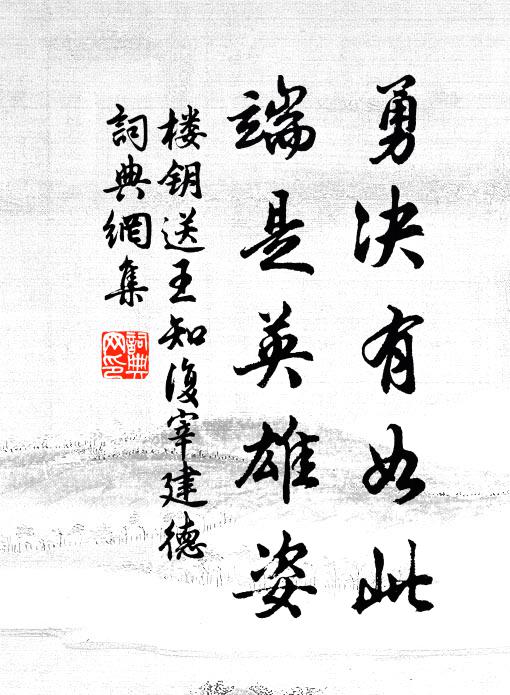 勇决有如此
端是英雄姿
楼钥送王知复宰建德
詞典網集
詞典
网印